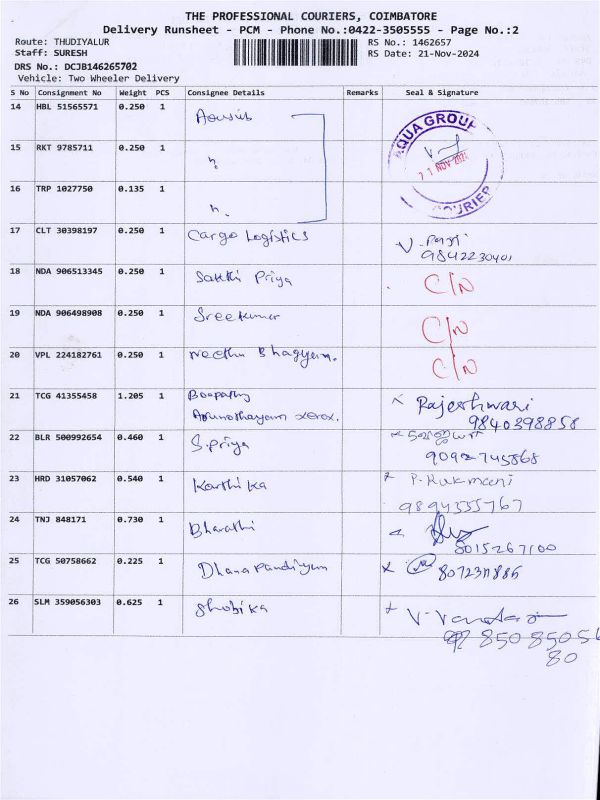 THE PROFESSIONAL COURIERS, COIMBATORE
Delivery Runsheet - PCM - Phone No.:0422-3505555 - Page No.:2
Route: THUDIYALUR RS No.: 1462657
Staff: SURESH RS Date: 21-Nov-2024
DRS No.: DCJB146265702
Vehicle: Two Wheeler Delivery
S No Consignment No Weight PCS Consignee Details Remarks Seal & Signature
14 HBL 51565571 0.250 1
AQUA GROUP
15 RKT 9785711 0.250 1
NOV 2024
16 TRP 1027750 0.135 1
COURIER
17 CLT 30398197 0.250 1 Cargo Logistics V.
9842230401
18 NDA 906513345 0.250 1 Sakthi Priya C/N
19 NDA 906498908 0.250 1 Sreekumar C/N
20 VPL 224182761 0.250 1 C/N
21 TCG 41355458 1.205 1 Boopathy Rajeshwari
xerox. 9840398858
22 BLR 500992654 0.460 1 S.Priya
9092745868
23 HRD 31057062 0.540 1 Karthika P. Rukmani
9894555767
24 TNJ 848171 0.730 1 Bharathi
8015267100
25 TCG 50758662 0.225 1 Dhanapandiyan
26 SLM 359056303 0.625 1 Shobika
8508505
80